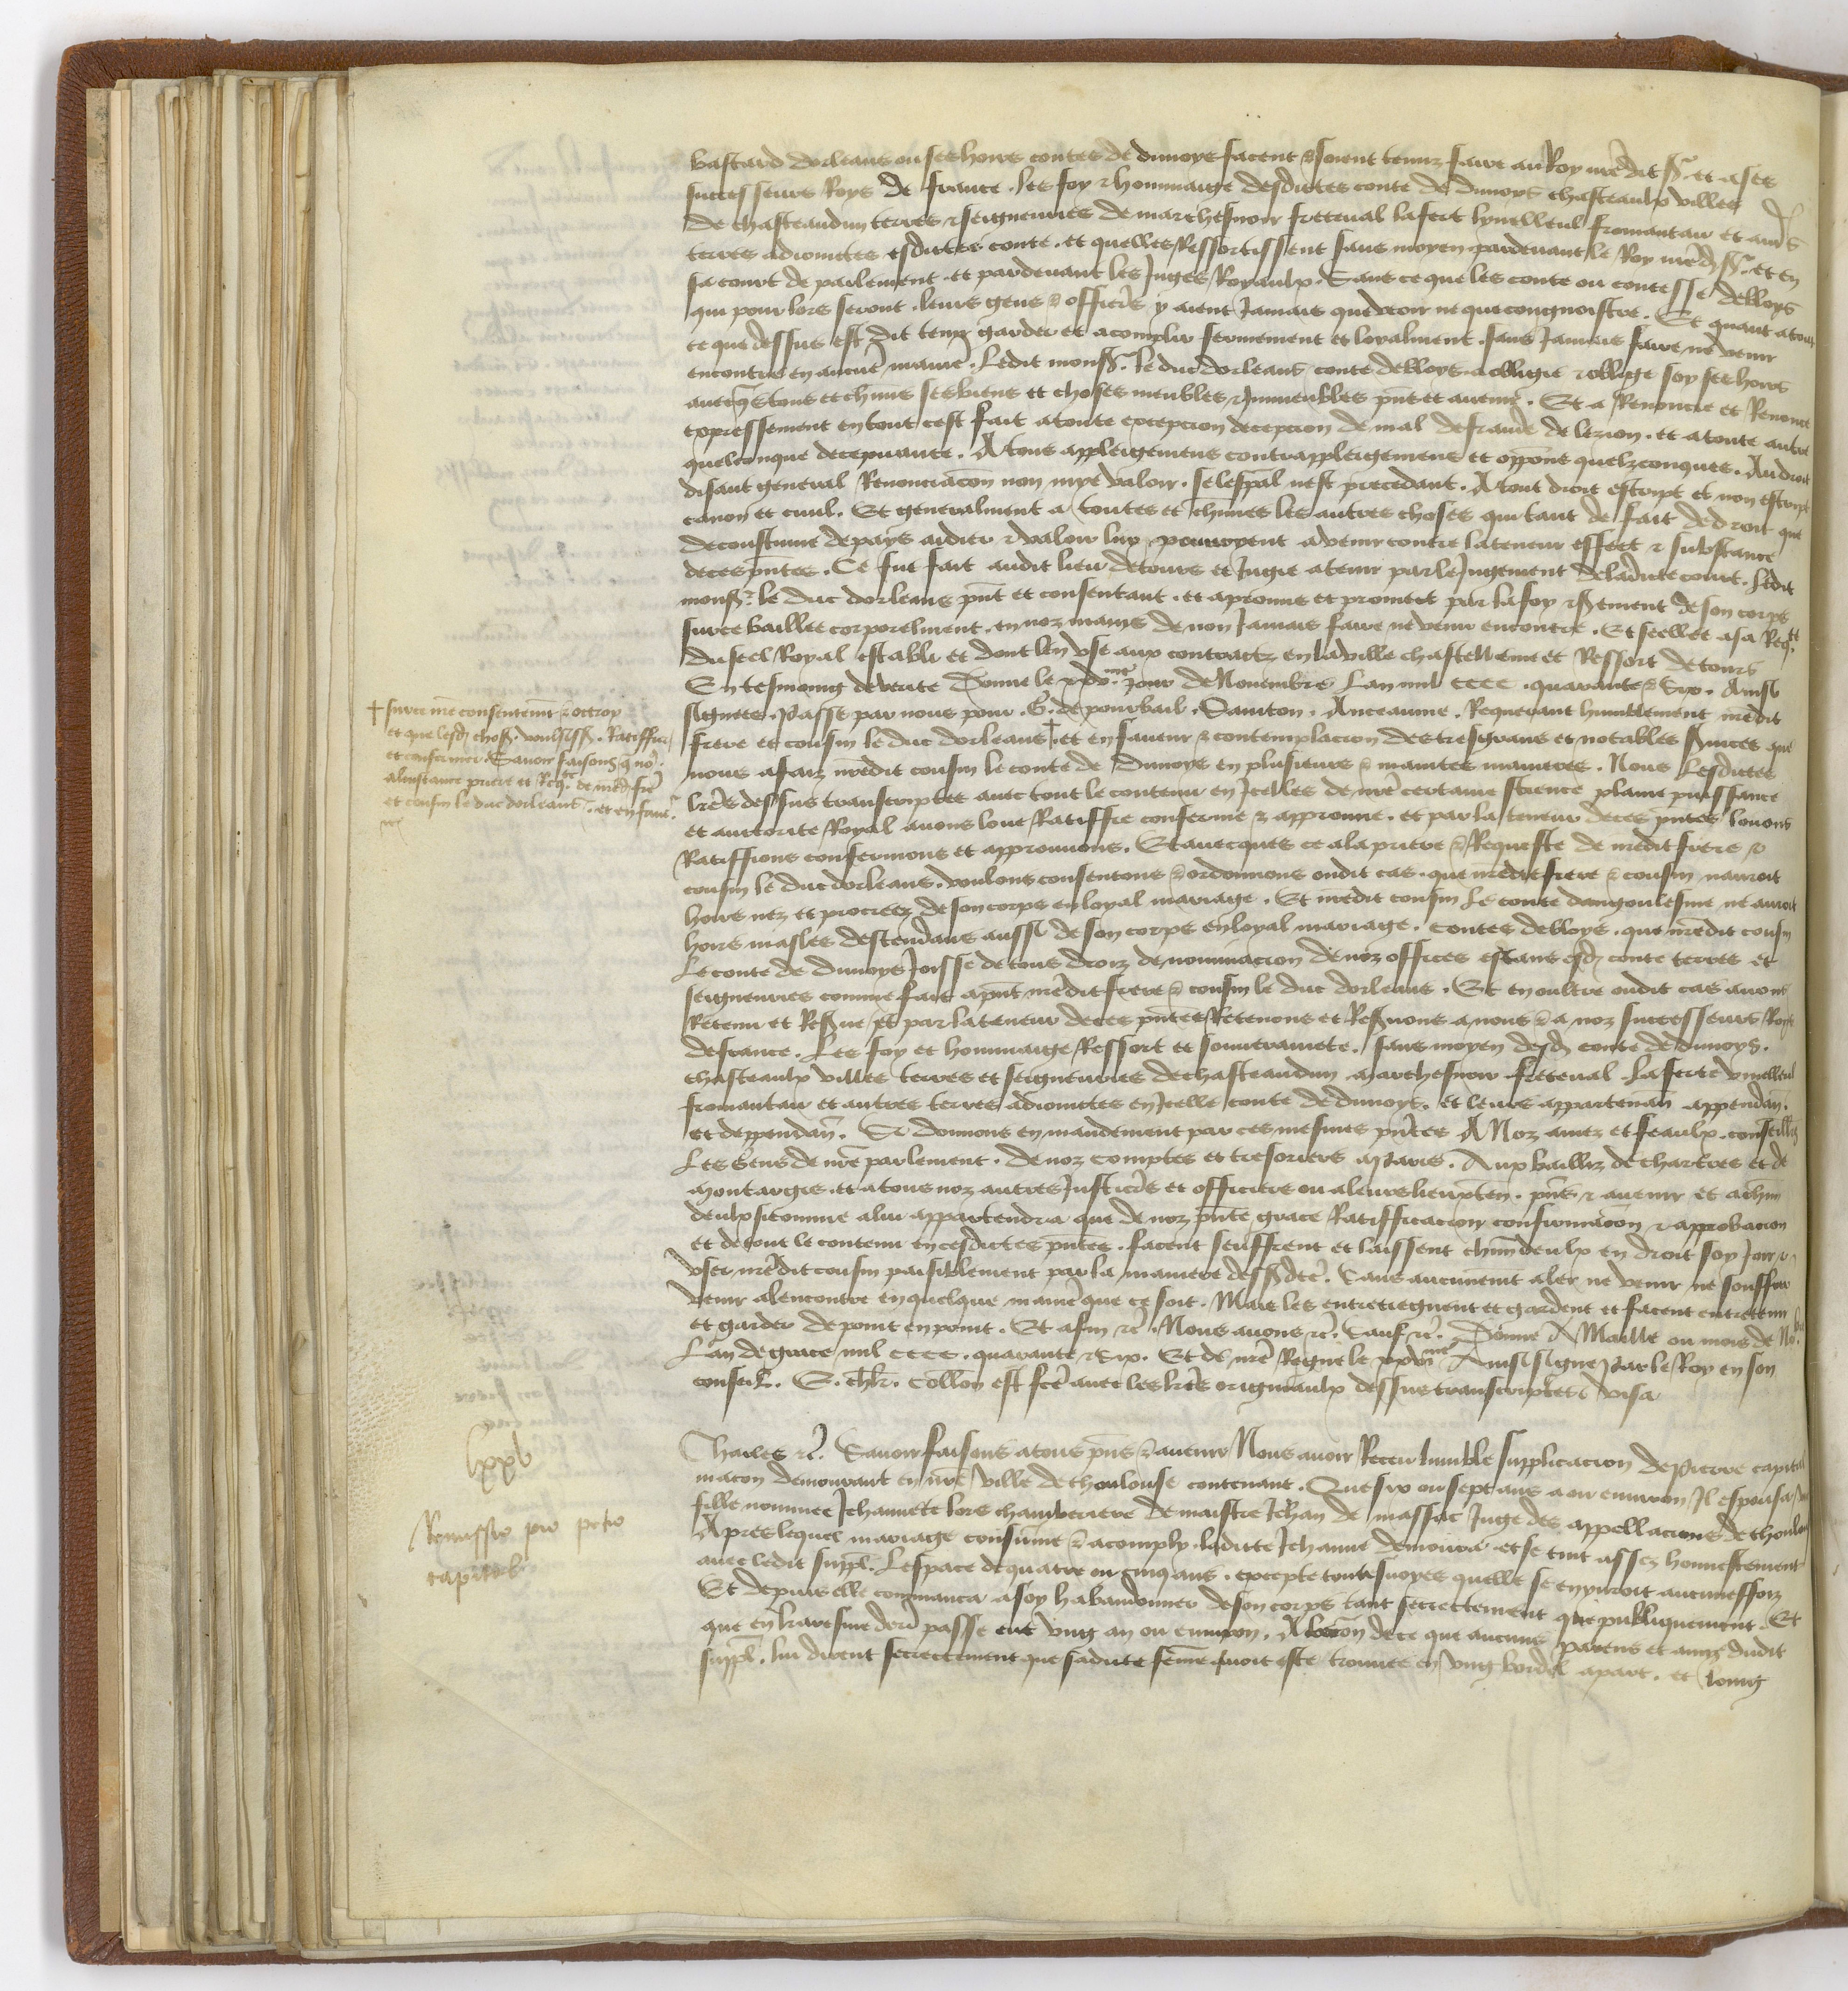 bastard dorleans ou ses hoirs contes de dunoys facent & soient tenuz faire au Roy nredit sr. et a ses
successeurs Roys de france. les foy & hommaige desdictes conte de dunoys chasteaulx villes
de chasteaudun terres & seigneuries de marchesnoir freteval la fert vyneilleul fromantau et aues
terres adioinctes esdictes conte. et quelles Ressortissent sans moyen pardevant le Roy nred sr. et en
sa court de parlement. et pardevant les Juges Royaulx. Sans ce que les conte ou contesse debloys
qui pour lors seront. leurs gens & officiers y aient Jamais que veoir ne que congnoistre. Et quant a tout
ce que dessus est dit tenir garder et acomplir fermement et loyalment. sans Jamais faire ne venir
encontre en aucue maniere. Ledit monsr. le duc dorleans conte debloys a obligie & oblige soy ses hoirs
avecqs tous et chuns ses biens et choses meubles & Jmmeubles pns et avenir. Et a Renoncie et Renonce
expressement en tout cest fait a toute excepcion decepcion de mal de fraude de lezion. et a toute autre
quelconque decepvance. A tous appleigemens contrappleigemens et oppons quelzconques. Au droit
disant general Renonciacon non mye valoir. se lespal nest precedant. A tout droit escript et non escript
canon et civil. Et generalment a toutes et chunes les autres choses qui tant de fait de droit que
de coustume de pays aidier & valoir luy pourroyent a venir contre la teneur effect & substance
de ces pntes. Ce fut fait audit lieu de tours et Jugie a tenir par le Jugement de ladicte court. Ledit
monsr. le duc dorleans pnt et consentant. et a promis et promect par la foy & serement de son corps
sur ce baillee corporelment. en noz mains de non Jamais faire ne venir encontre. Et seellee a sa Reqte
du seel Royal establi et dont len use aux contractz en la ville chastellenie et Ressort de tours
En tesmoing de verite Donne le xxvme. Jour de Novembre Lan mil cccc. quarante & six. Ainsi
signees. Passe par nous pour. G. de pourbail. Santon. Anceaume. Requerant humblement nredit
frere et cousin le duc dorleans † et en faveur & contemplacion des tresgrans et notables services que
nous a faiz nredit cousin le conte de Dunoys en plusieurs & maintes manieres. Nous Lesdictes
lres dessus transcriptes avec tout le contenu en Jcelles de nre certaine science plaine puissance
et auctorite Royal avons loue Ratiffie conferme & approuve. et par la teneur de ces pntes louons
Ratiffions confermons et approuvons. Et avecques ce a la priere & Requeste de nredit frere &
cousin le duc dorleans. voulons consentons & ordonnons oudit cas. que nredit frere & cousin nauroit
hoirs nez et procreez de son corps en loyal mariage. Et nredit cousin Le conte dangoulesme ne auroit
hoirs masles descendans aussi de son corps en loyal mariage. contes debloys. que nredit cousin
Le conte de dunoys Joisse de tous droiz de nominacion de noz offices estans esd conte terres et
seigneuries comme fait a pnt nredit frere & cousin le duc dorleans. Et en oultre oudit cas avons
Retenu et Reserve et par la teneur de ces pntes Retenons et Reservons a nous & a noz successeurs Roys
de france. Les foy et hommaige Ressort et souverainete. sans moyen desd conte de dunoys.
chasteaulx villes terres et seigneuries de chasteaudun marchesnoir freteval. La ferte vineilleul
fromantau et autres terres adioinctes en Jcelle conte de dunoys. et leurs appartenan appendan.
et deppendan. Si donnons en mandement par ces mesmes pntes A Noz amez et feaulx conseillrs
Les Gens de nre parlement. de noz comptes et tresoriers a Paris. Aux bailliz de chartres et de
Montargis. et a tous noz autres Justiciers et officiers ou a leurs lieuxten. pns & avenir et a chun
deulx si comme a lui appartendra que de noz pnte grace Ratifficacion confirmacon & approbacion
et de tout le contenu en cesdictes pntes. facent seuffrent et laissent chun deulx en droit soy Joir &
user nredit cousin paisiblement par la maniere dessdcte. Sans aucunemt aler ne venir ne souffrir
venir alencontre en quelque maniere que ce soit. Mais les entretiegnent et gardent et facent entretenir
et garder de point en point. Et afin &c. Nous avons &c. Sauf &c. Donne A Maille ou mois de No.
Lan de grace mil cccc. quarante & six. Et de nre Regne le xxvme Ainsi signe Par le Roy en son
conseil. E. chlr. collon est fce avec les lres originaulx dessus transcriptes visa
† sur ce nre consentemt & octroy
et que lesd choss. voulsissi. Ratiffier
et confermer. Savoir faisons q no.
a linstance priere et Reqte de nred frere
et cousin le duc dorleans. et en fave.
lxxv
Remissio pro petro
capitel
Charles &c. Savoir faisons a tous pns & avenir Nous avoir Receu lumble supplicacion de Pierre capitel
macon demourant en nre ville de thoulouse contenant. Que six ou sept ans a ou environ Jl espousa une
fille nommee Jehannete lors chamberiere de maistre Jehan de massac Juge des appellacions de thoulouse
Apres lequel mariage consume & acomply. ladicte Jehanne demoura et se tint assez honnestement
avec ledit suppl. Lespace de quatre ou cinq ans. excepte toutesvoyes quelle se enyvroit aucuneffoiz
Et depuis elle commanca a soy habandonner de son corps tant secrettement que publiquement. Et
que en karesme derr passe eut ung an ou environ. A loccon de ce que aucuns parens et amys dudit
suppl. lui dirent secrettement que sadicte feme avoit este trouvee en ung bordel apart. et loing